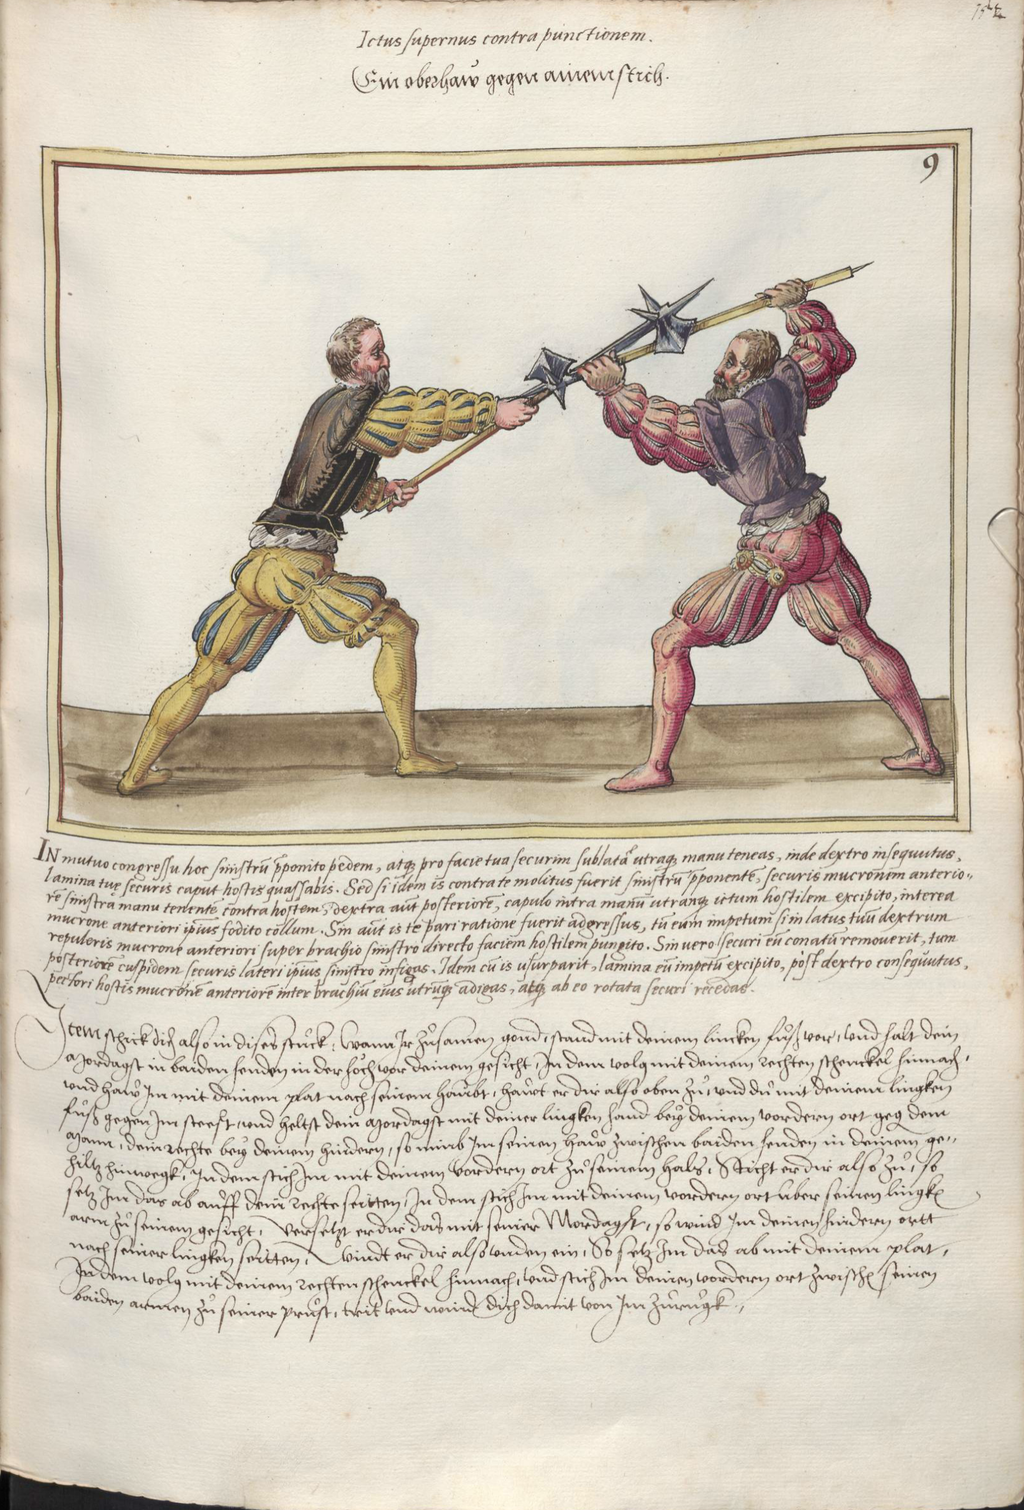 Ictus supernus contra punctionem.
Ein oberhaw gegen ainem stich.
9
IN mutuo congressu hoc sinistrũ p̃ponito pedem, atq; pro facie tua securim sublatã utraq; manu teneas, inde dextro insequutus,
lamina tuę securis caput hostis quassabis. Sed si idem is contra te molitus fuerit sinistrũ p̃ponente, securis mucronem anterio-
rẽ sinistra manu tenentẽ contra hostem, dextra aũt posteriorẽ, capulo intra manũ utranq; ictum hostilem excipito, interea
mucrone anteriori ipius fodito collum. Sin aũt is te pari ratione fuerit adgressus, tũ eum impetum si in latus tuũ dextrum
repuleris mucrone anteriori super brachio sinistro directo faciem hostilem pungito. Sin vero securi eũ conatũ removerit, tum
posteriorẽ cuspidem securis lateri ipius sinistro insigas. Idem cũ is usurparit, lamina eũ impetũ excipito, post dextro consequutus,
pectori hostis mucronẽ anteriorẽ inter brachiũ eius utrũq; adigas, atq; ab eo rotata securi recedas.
Item schick dich also in dises stuck, wann Ir zůsamen gond, stand mit deinem lincken fůß vor, und halt dein
Mordagst in baiden henden in der höch vor deinem gesicht, In dem volg mit deinem rechten schenckel hinnach,
und haw Im mit deinem plat nach seinem haubt, hawt er dir also oben zů, und du mit deinem lingken
fůß gegen Im steest, und heltst dein Mordagst mit deiner lingken hand bey deinem vordern ort geg dem
Mann, dein rechte bey deinem hindern, so nimb Im seinen haw zwischen baiden henden in deinem ge-
hiltz hinwegk, In dem stich Im mit deinem vordern ort zů seinem hals, Sticht er dir also zů, so
setz Im das ab auff dein rechte seitten, In dem stich Im mit deinem vordern ort uber seinen lingkẽ
arm zů seinem gesicht, Versetzt er dir das mit seiner Mordagst, so wind Im deinen hindern ortt
nach seiner lingken seitten, Windt er dir also unden ein, So setz Im das ab mit deinem plat,
In dem volg mit deinem rechten schenckel hinnach, und stich Im deinen vordern ort zwischẽ seinen
baiden armen zů seiner prust, trit und wind dich damit von Im zůrugk.